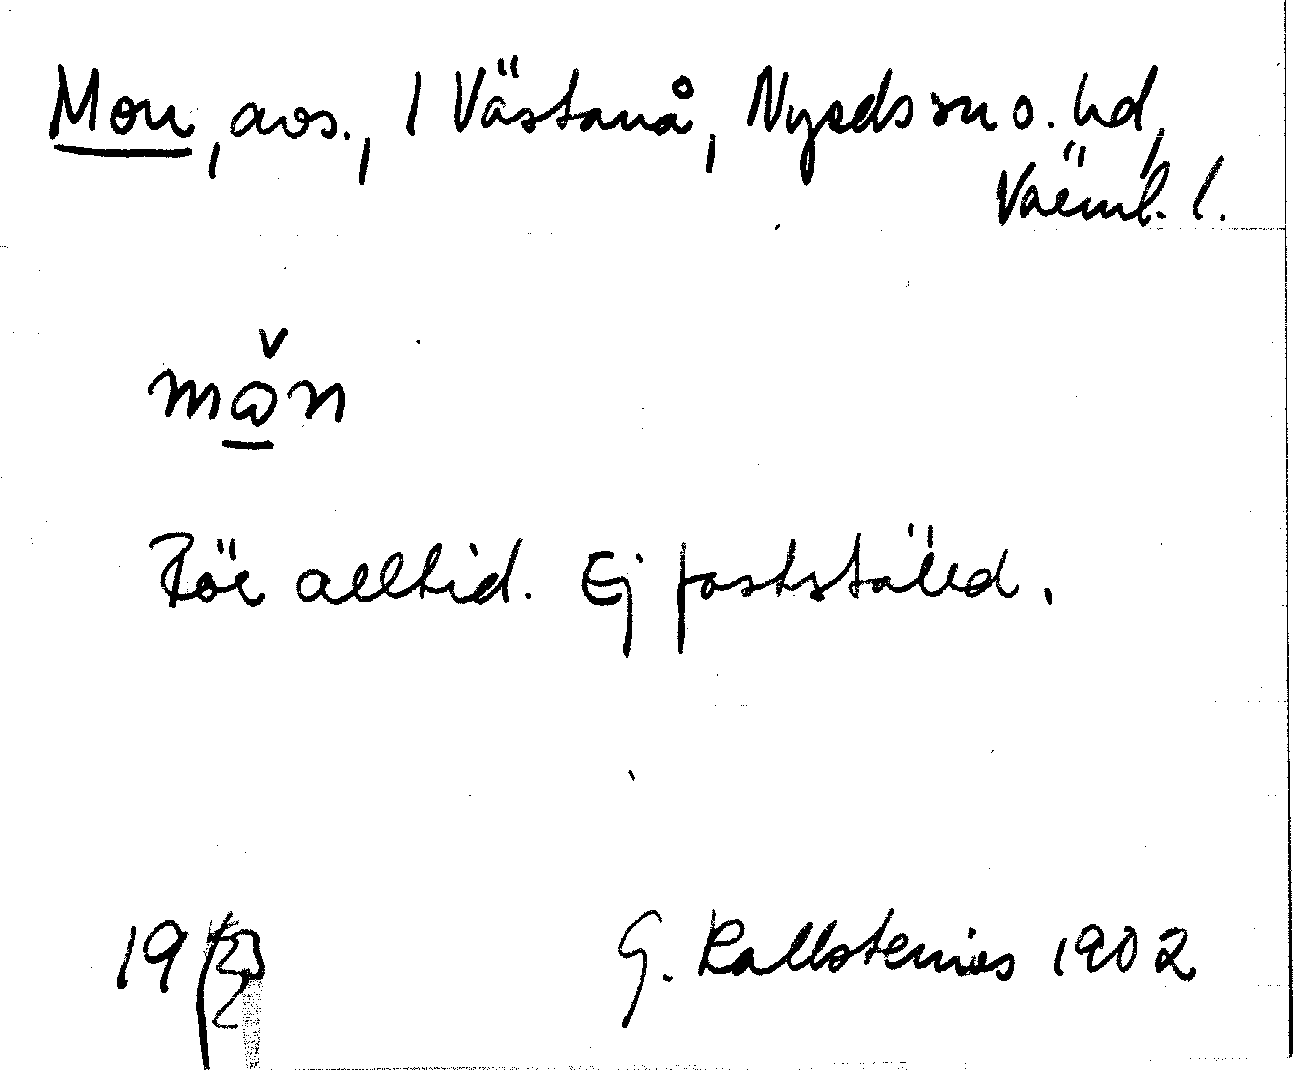 Mon, avs., 1 Västanå, Nyeds sn o. hd,
Värml. l.
mǫ̌n
För alltid. Ej fastställd.
19
G. Kallstenius 1902